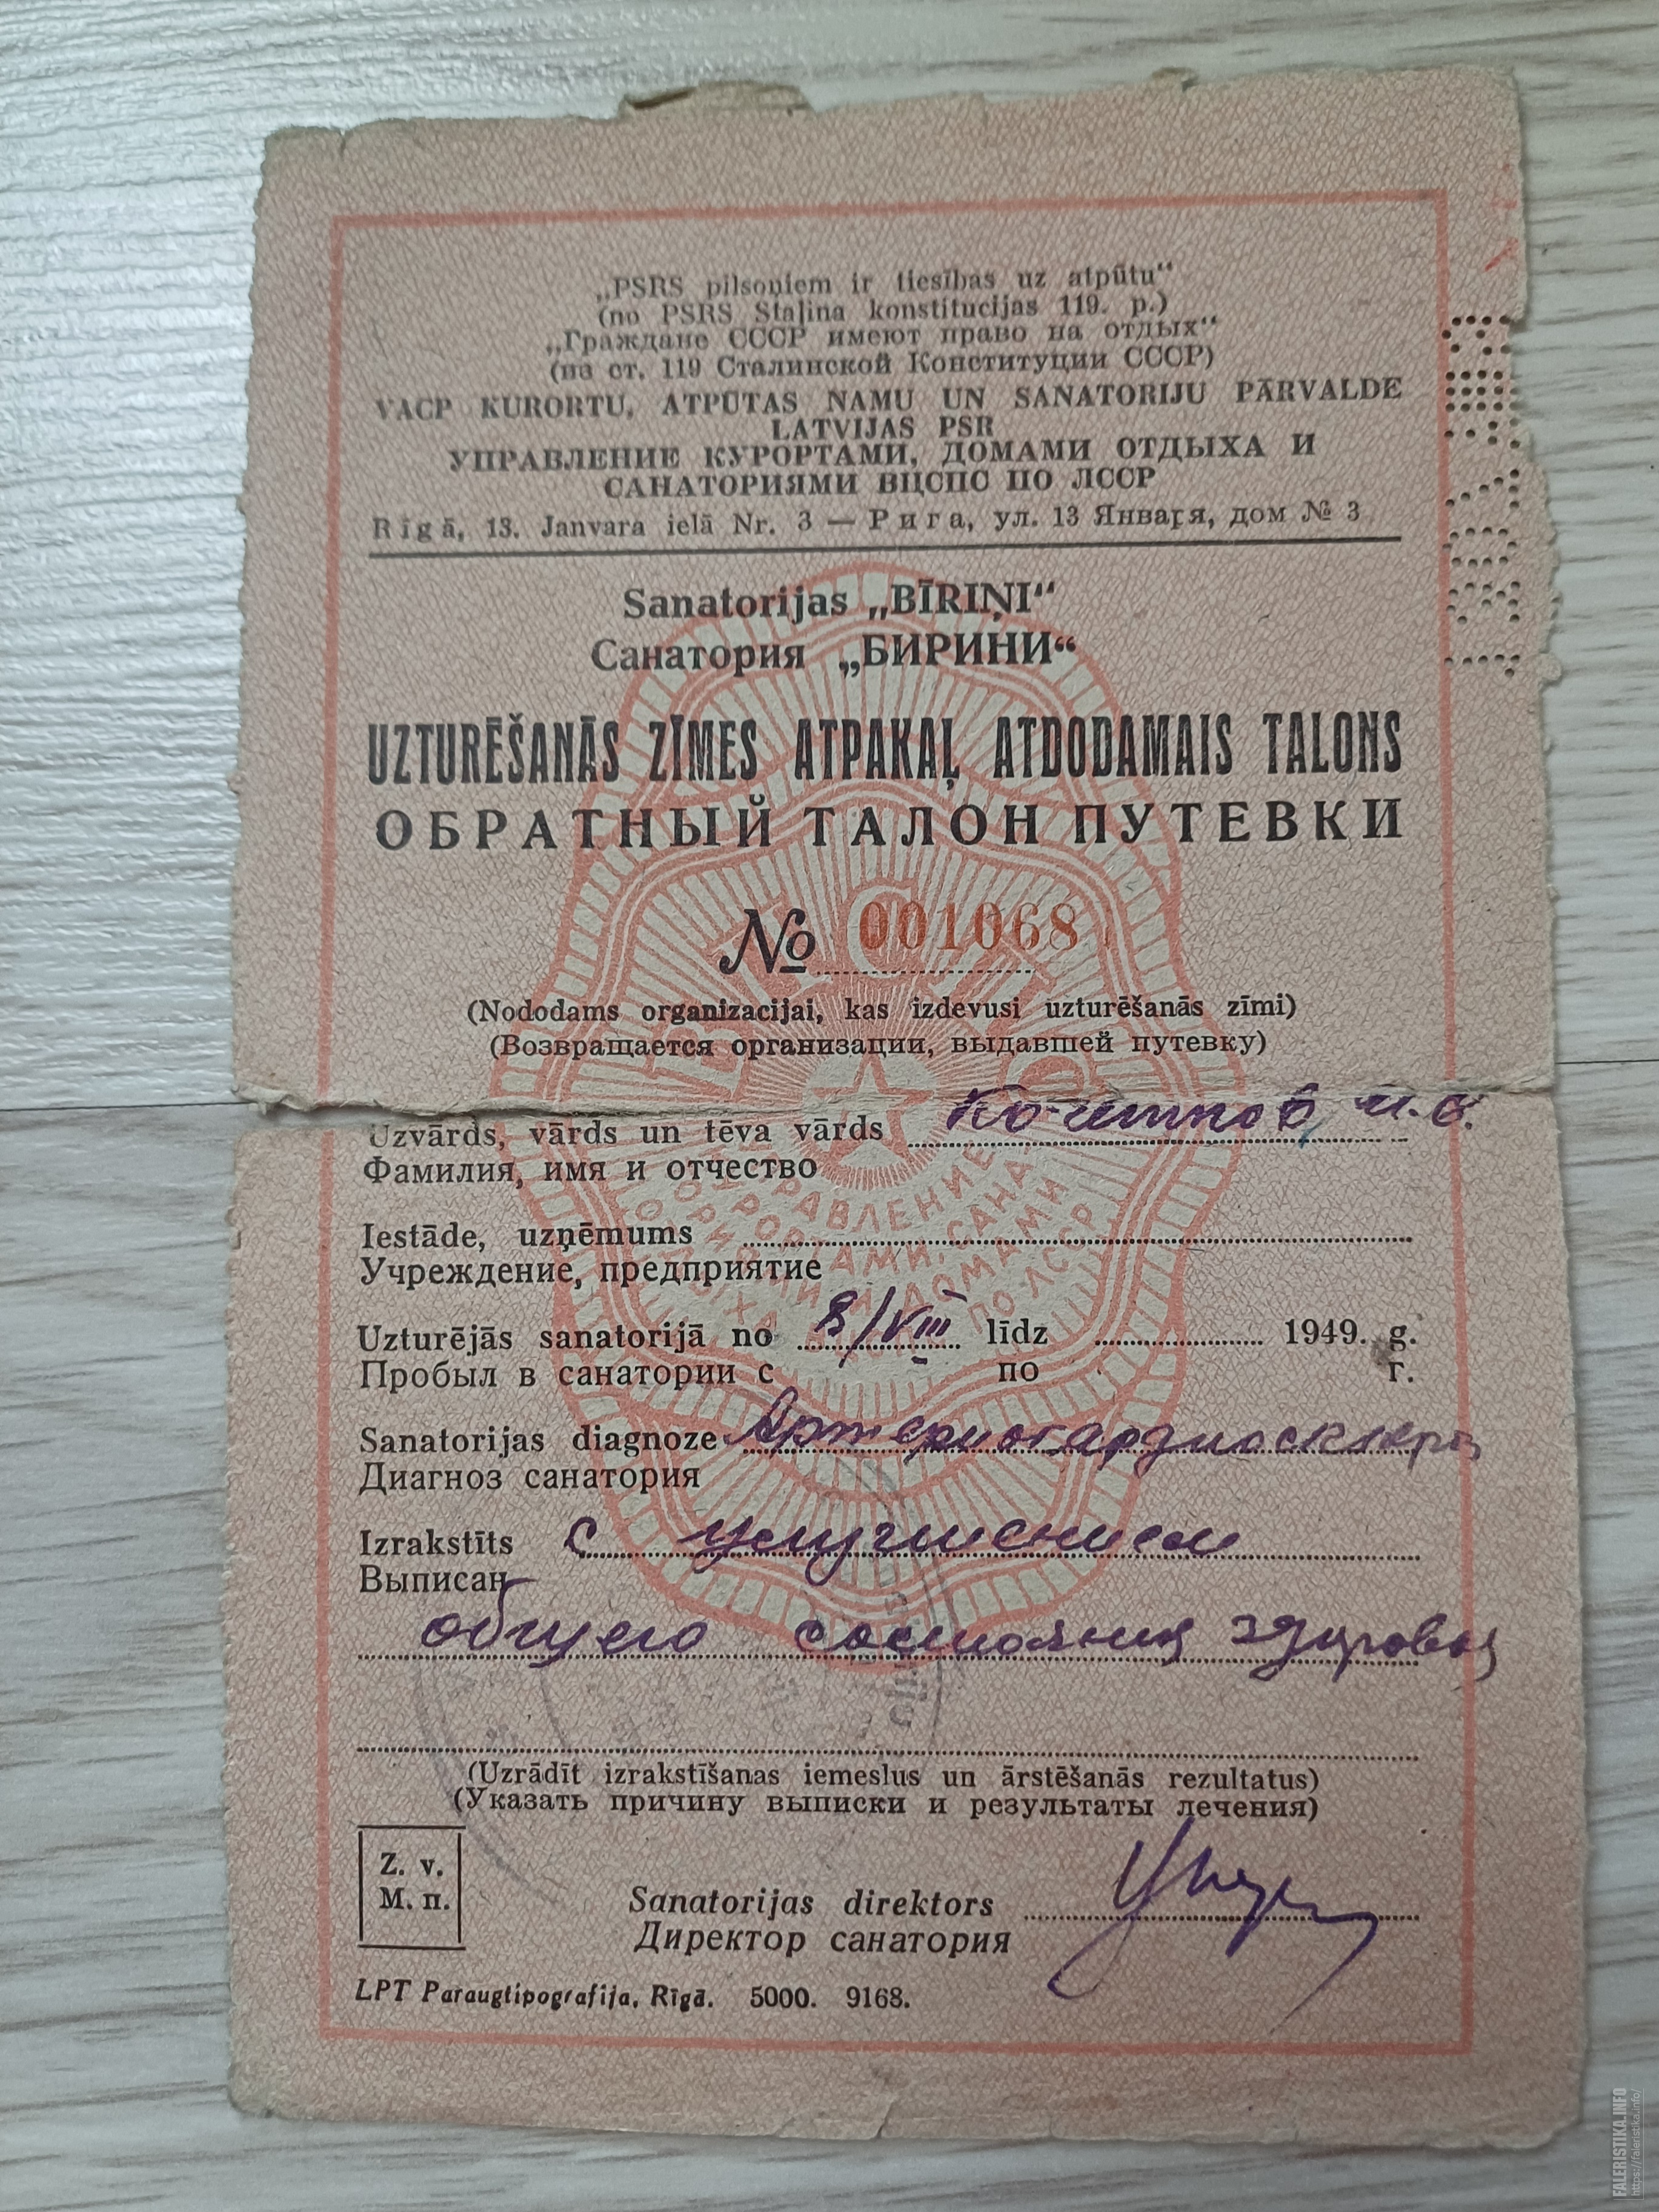 „PSRS pilsoņiem ir tiesības uz atpūtu“
(no PSRS Staļina konstitucijas 119. p.)
„Граждане СССР имеют право на отдых“
(из ст. 119 Сталинской Конституции СССР)
VACP KURORTU, ATPŪTAS NAMU UN SANATORIJU PĀRVALDE
LATVIJAS PSR
УПРАВЛЕНИЕ КУРОРТАМИ, ДОМАМИ ОТДЫХА И
САНАТОРИЯМИ ВЦСПС ПО ЛССР
Rīgā, 13. Janvara ielā Nr. 3 — Рига, ул. 13 Января, дом № 3
Sanatorijas „BĪRIŅI“
Санатория „БИРИНИ“
UZTURĒŠANĀS ZĪMES ATPAKAĻ ATDODAMAIS TALONS
ОБРАТНЫЙ ТАЛОН ПУТЕВКИ
№ 001068
(Nododams organizacijai, kas izdevusi uzturēšanās zīmi)
(Возвращается организации, выдавшей путевку)
Uzvārds, vārds un tēva vārds
Фамилия, имя и отчество
Iestāde, uzņēmums
Учреждение, предприятие
Uzturējās sanatorijā no 8/VIII līdz 1949. g.
Пробыл в санатории с по г.
Sanatorijas diagnoze Артериокардиосклероз
Диагноз санатория
Izrakstīts с улучшением
Выписан
общего состояния здоровья
(Uzrādīt izrakstīšanas iemeslus un ārstēšanās rezultatus)
(Указать причину выписки и результаты лечения)
Z. v.
М. п.
Sanatorijas direktors
Директор санатория
LPT Paraugtipografija, Rīgā. 5000. 9168.
FALERISTIKA.INFO
https://faleristika.info/